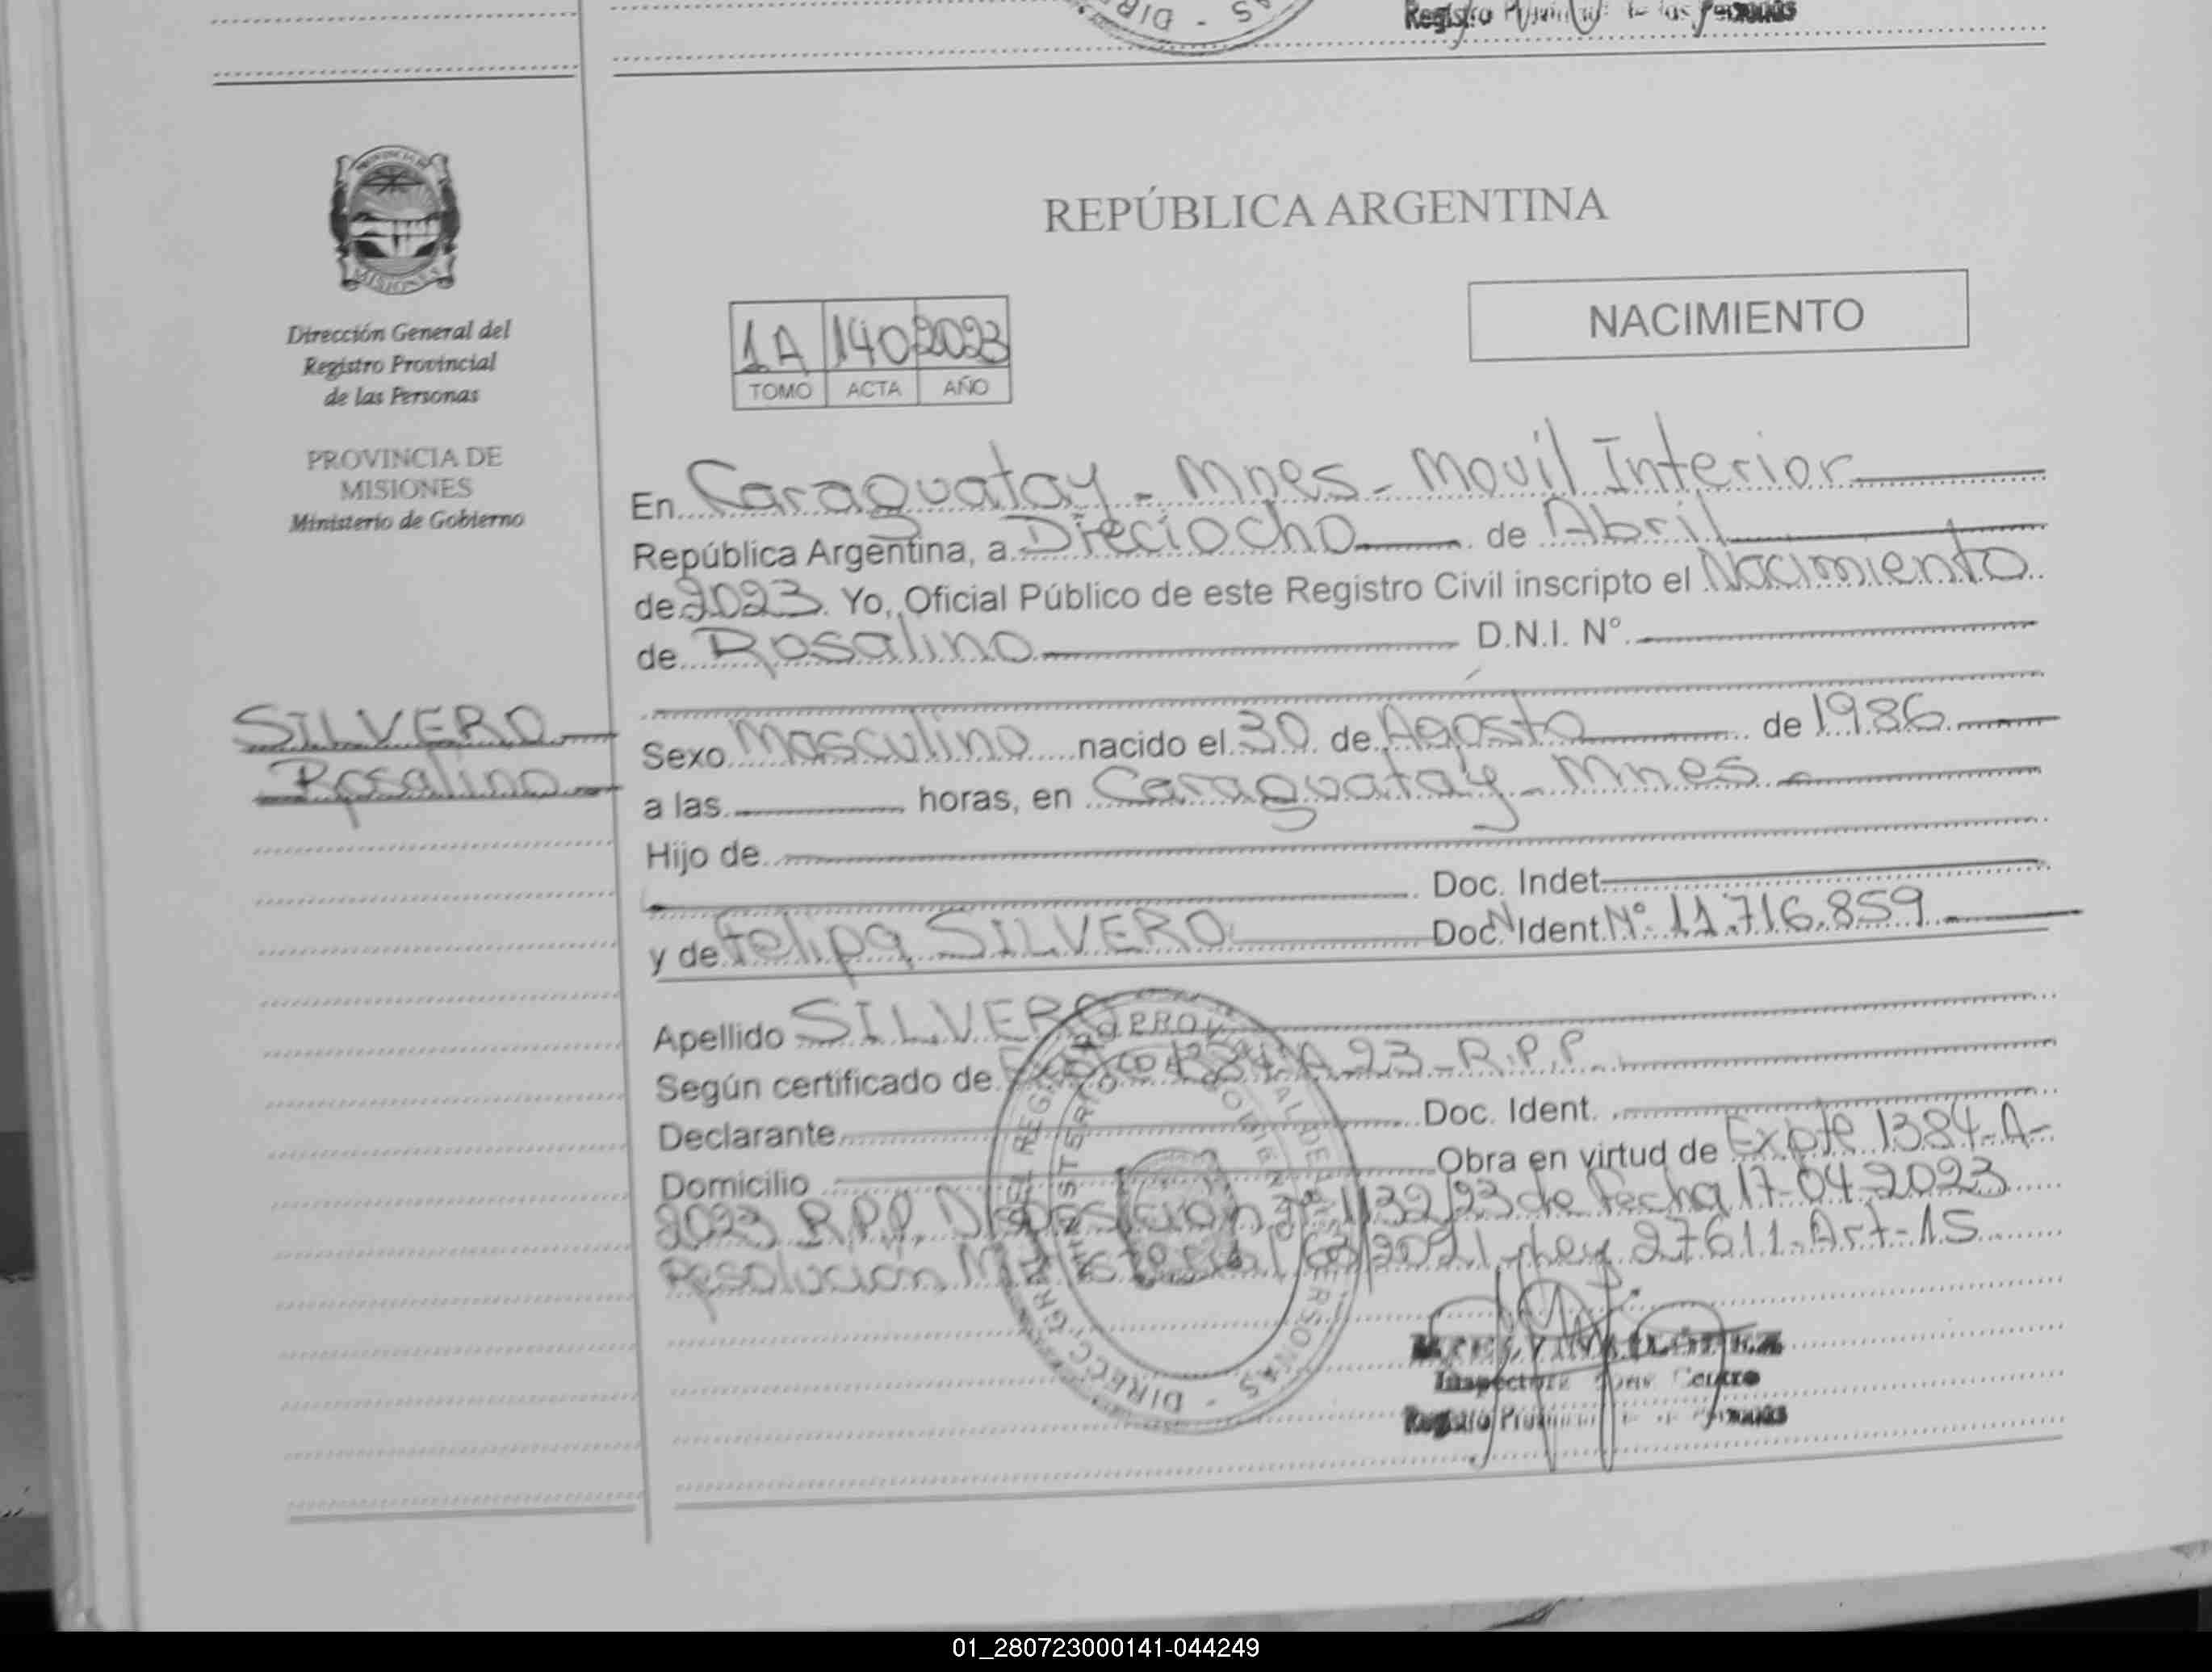 DIR - S AS
Registro Provincial de las Personas
PROVINCIA DE
MISIONES
Dirección General del
Registro Provincial
de las Personas
PROVINCIA DE
MISIONES
Ministerio de Gobierno
SILVERO
Rosalino
REPÚBLICA ARGENTINA
NACIMIENTO
1A 140 2023
TOMO ACTA AÑO
En Caraguatay - Mnes - Movil Interior
República Argentina, a Dieciocho de Abril
de 2023. Yo, Oficial Público de este Registro Civil inscripto el Nacimiento
de Rosalino D.N.I. N°
Sexo Masculino nacido el 30 de Agosto de 1986
a las horas, en Caraguatay - Mnes -
Hijo de
Doc. Indet
y de Felipa SILVERO Doc. Ident. N° 11.716.859
Apellido SILVERO
Según certificado de A 23 - R.P.P.
Declarante Doc. Ident.
Domicilio Obra en virtud de Expte 1384-A-
2023 R.P.P. Disposicion N° 1132/23 de fecha 17-04-2023
Resolucion Ministerial 63/2021 - Ley 27611-Art-15
Inspectora Zona Centro
Registro Provincial de las Personas
01_280723000141-044249